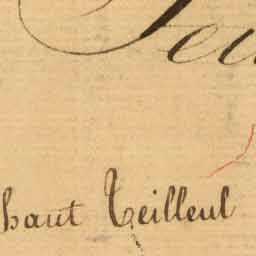 haut Teilleul